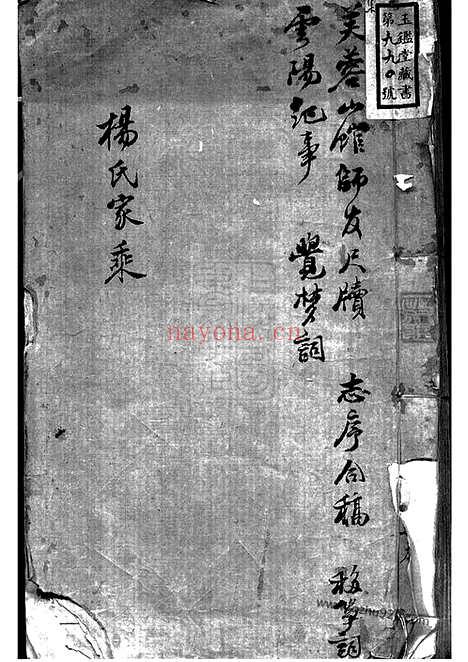 玉鑑堂藏書
第九九〇號
芙蓉山館師友尺牘 志序合稿 移箏詞
雲陽記事 覺夢詞
楊氏家乘
nayona.cn